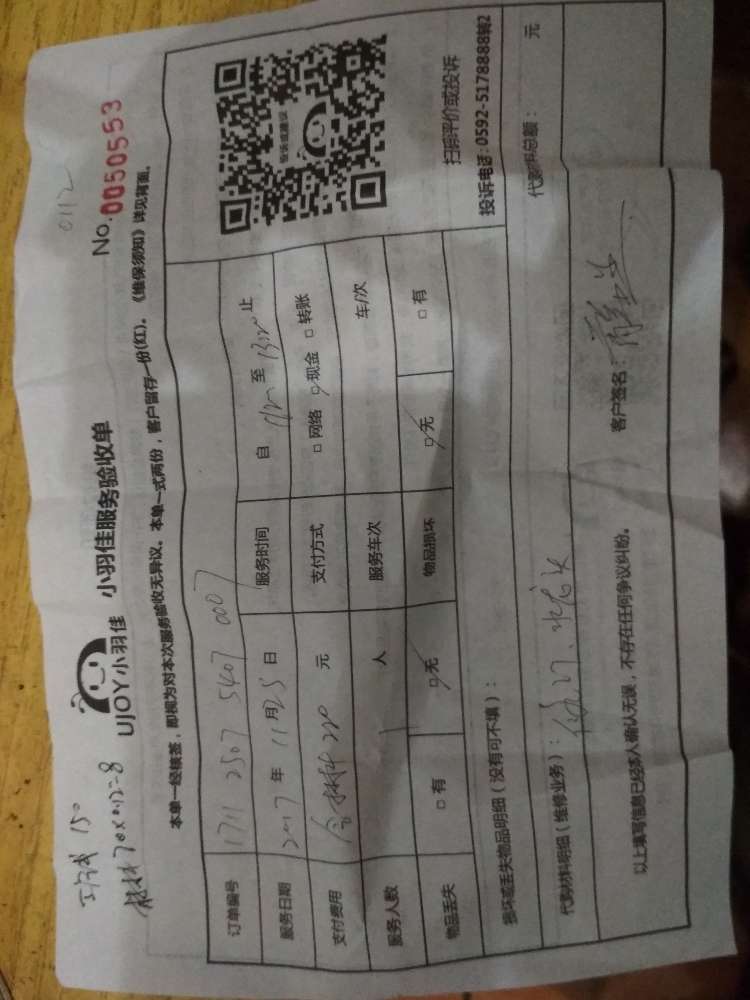 工钱 150
材料70×0.12=8
0112
UJOY小羽佳 小羽佳服务验收单
No.0050553
本单一经核签，即视为对本次服务验收无异议。本单一式两份，客户留存一份(红)。《维保须知》详见背面。
订单编号 1711 2507 5407 0007
服务日期 2017年11月25日 服务时间 自 至 止
支付费用 含材料220 元 支付方式 □网络 □现金 □转账
服务人数 1 人 服务车次 车/次
物品丢失 □有 □无 物品损坏 □无 □有
投诉或建议
扫码评价或投诉
投诉电话:0592-5178888转2
损坏或丢失物品明细（没有可不填）：
代购材料明细（维修业务）： 代购料总额： 元
以上填写信息已经本人确认无误，不存在任何争议纠纷。 客户签名：